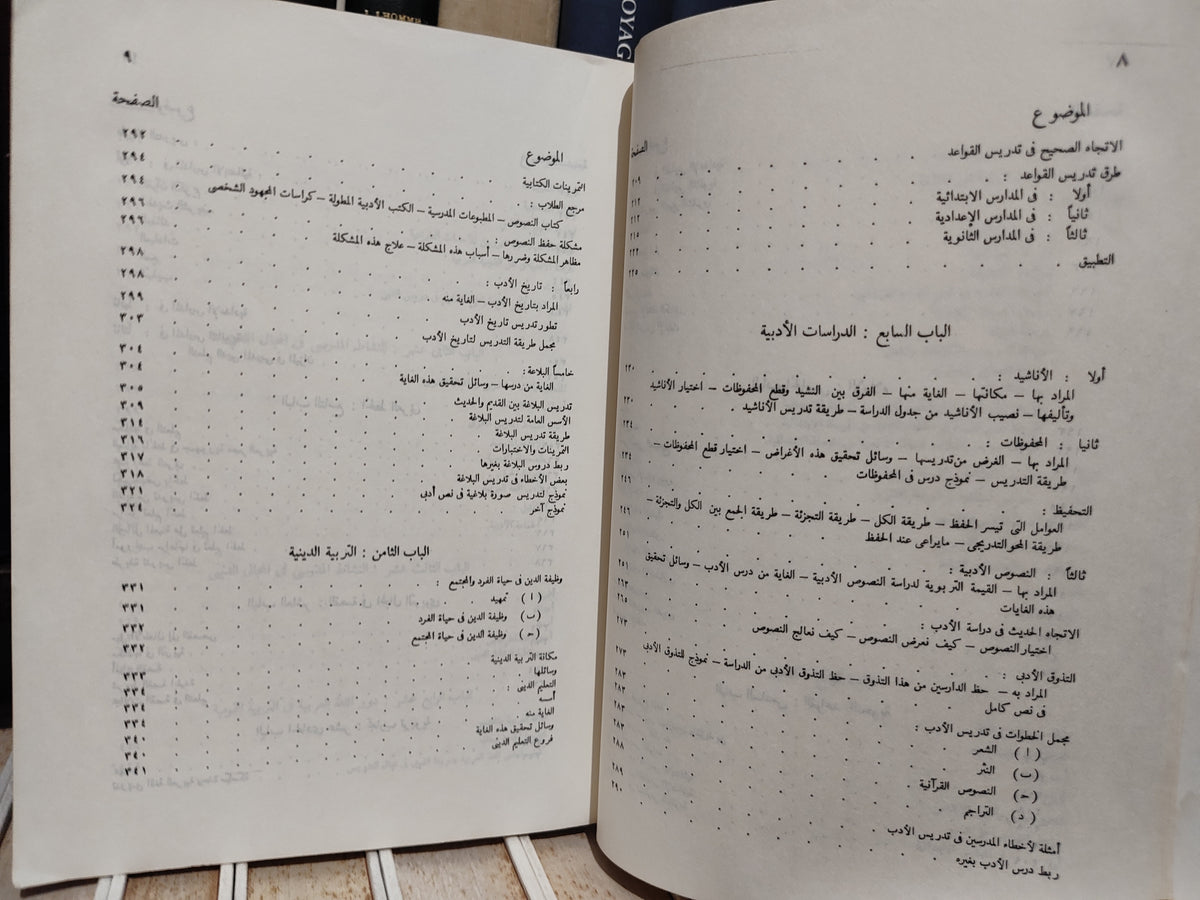 ٨
الموضوع
الصفحة
الاتجاه الصحيح فى تدريس القواعد
طرق تدريس القواعد : ٢٠٩
أولا : فى المدارس الابتدائية ٢١٢
ثانياً : فى المدارس الإعدادية ٢١٢
ثالثاً : فى المدارس الثانوية ٢١٥
٢٢٢
التطبيق ٢٢٥
الباب السابع : الدراسات الأدبية
أولا : الأناشيد : ٢٣٠
المراد بها – مكانتها – الغاية منها – الفرق بين النشيد وقطع المحفوظات – اختيار الأناشيد
وتأليفها – نصيب الأناشيد من جدول الدراسة – طريقة تدريس الأناشيد . ٢٣٠
ثانيا : المحفوظات : ٢٣٤
المراد بها – الغرض من تدريسها – وسائل تحقيق هذه الأغراض – اختيار قطع المحفوظات –
طريقة التدريس – نموذج درس فى المحفوظات ٢٣٤
التحفيظ : ٢٤٦
العوامل التى تيسر الحفظ – طريقة الكل – طريقة التجزئة – طريقة الجمع بين الكل والتجزئة –
طريقة المحو التدريجى – مايراعى عند الحفظ ٢٤٦
ثالثاً : النصوص الأدبية : ٢٥١
المراد بها – القيمة التربوية لدراسة النصوص الأدبية – الغاية من درس الأدب – وسائل تحقيق
هذه الغايات ٢٥١
الاتجاه الحديث فى دراسة الأدب : ٢٦٣
اختيار النصوص – كيف نعرض النصوص – كيف نعالج النصوص ٢٦٥
التذوق الأدبى : ٢٧٣
المراد به – حظ الدارسين من هذا التذوق – حظ التذوق الأدبى من الدراسة – نموذج للتذوق الأدبى
فى نص كامل ٢٧٣
مجمل الخطوات فى تدريس الأدب : ٢٨٣
( ا ) الشعر ٢٨٣
( ب ) النثر ٢٨٣
( ح ) النصوص القرآنية ٢٨٣
( د ) التراجم ٢٨٨
أمثلة لأخطاء المدرسين فى تدريس الأدب ٢٨٩
ربط درس الأدب بغيره ٢٩٠
٩
الصفحة
الموضوع
التمرينات الكتابية ٢٩٢
مرجع الطلاب : ٢٩٤
كتاب النصوص – المطبوعات المدرسية – الكتب الأدبية المطولة – كراسات المجهود الشخصى ٢٩٤
مشكلة حفظ النصوص : ٢٩٦
مظاهر المشكلة وضررها – أسباب هذه المشكلة – علاج هذه المشكلة ٢٩٦
رابعاً : تاريخ الأدب : ٢٩٨
المراد بتاريخ الأدب – الغاية منه ٢٩٨
تطور تدريس تاريخ الأدب ٢٩٩
مجمل طريقة التدريس لتاريخ الأدب ٣٠٣
خامساً البلاغة : ٣٠٤
الغاية من درسها – وسائل تحقيق هذه الغاية ٣٠٤
تدريس البلاغة بين القديم والحديث ٣٠٥
الأسس العامة لتدريس البلاغة ٣٠٩
طريقة تدريس البلاغة ٣١٤
التمرينات والاختبارات ٣١٦
ربط دروس البلاغة بغيرها ٣١٧
بعض الأخطاء فى تدريس البلاغة ٣١٨
نموذج لتدريس صورة بلاغية فى نص أدبى ٣٢١
نموذج آخر ٣٢٤
الباب الثامن : التربية الدينية
وظيفة الدين فى حياة الفرد والمجتمع : ٣٣١
( ا ) تمهيد ٣٣١
( ب ) وظيفة الدين فى حياة الفرد ٣٣٢
( ح ) وظيفة الدين فى حياة المجتمع ٣٣٢
مكانة التربية الدينية ٣٣٣
وسائلها ٣٣٤
التعليم الدينى : ٣٣٤
أسسه ٣٣٤
الغاية منه ٣٤٠
وسائل تحقيق هذه الغاية ٣٤٠
فروع التعليم الدينى ٣٤١
OYAG